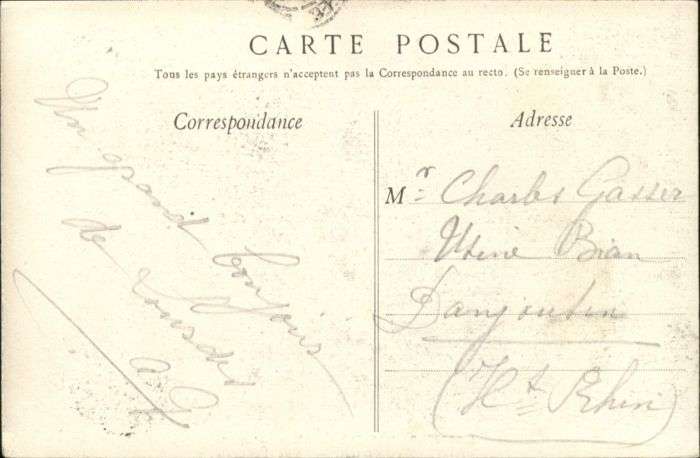 CARTE POSTALE
Tous les pays étrangers n'acceptent pas la Correspondance au recto. (Se renseigner à la Poste.)
Correspondance
Un grand bonjour
de
Adresse
Mr Charles Gasser
Usine Bian
Danjoutin
(Ht Rhin)